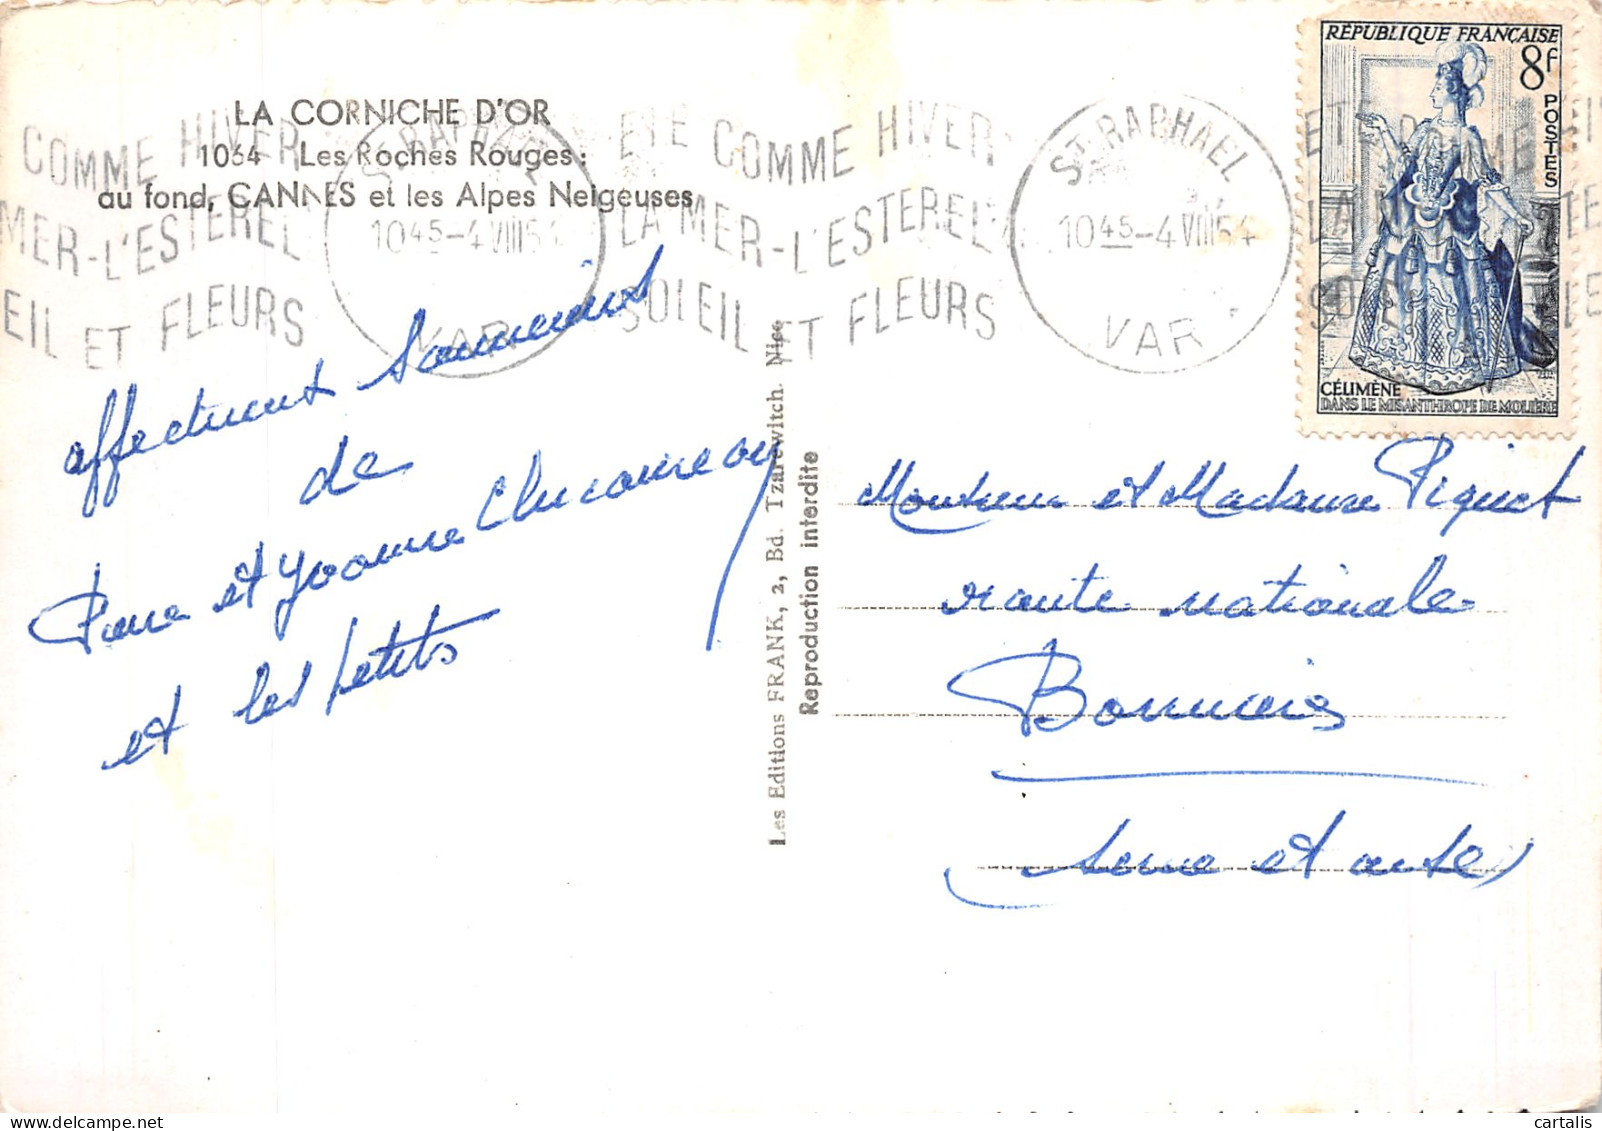 LA CORNICHE D'OR
1064 Les Roches Rouges;
au fond, CANNES et les Alpes Neigeuses
COMME HIVER
MER-L'ESTEREL
EIL ET FLEURS
ST RAPHAEL
1045-4 VIII 54
VAR
ETE COMME HIVER
LA MER-L'ESTEREL
SOLEIL ET FLEURS
ST RAPHAEL
1045-4 VIII 54
VAR
RÉPUBLIQUE FRANÇAISE
8F
POSTES
CÉLIMÈNE
DANS LE MISANTHROPE DE MOLIÈRE
affectueux souvenirs
de
Pierre et Yvonne
et les petits
Les Editions FRANK, 2, Bd. Tzarewitch. Nice
Reproduction interdite
Monsieur et Madame Piquet
route nationale
Bonnières
Seine et oise
cartalis